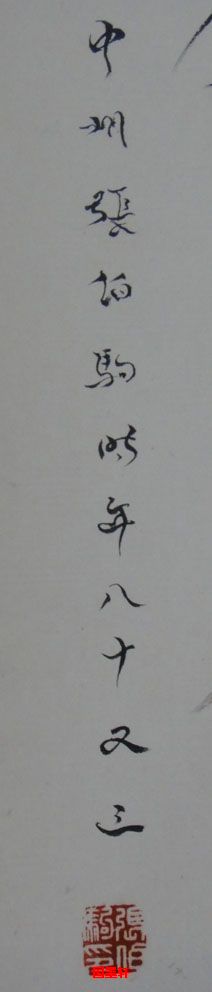 中州張伯駒時年八十又三
張伯駒印